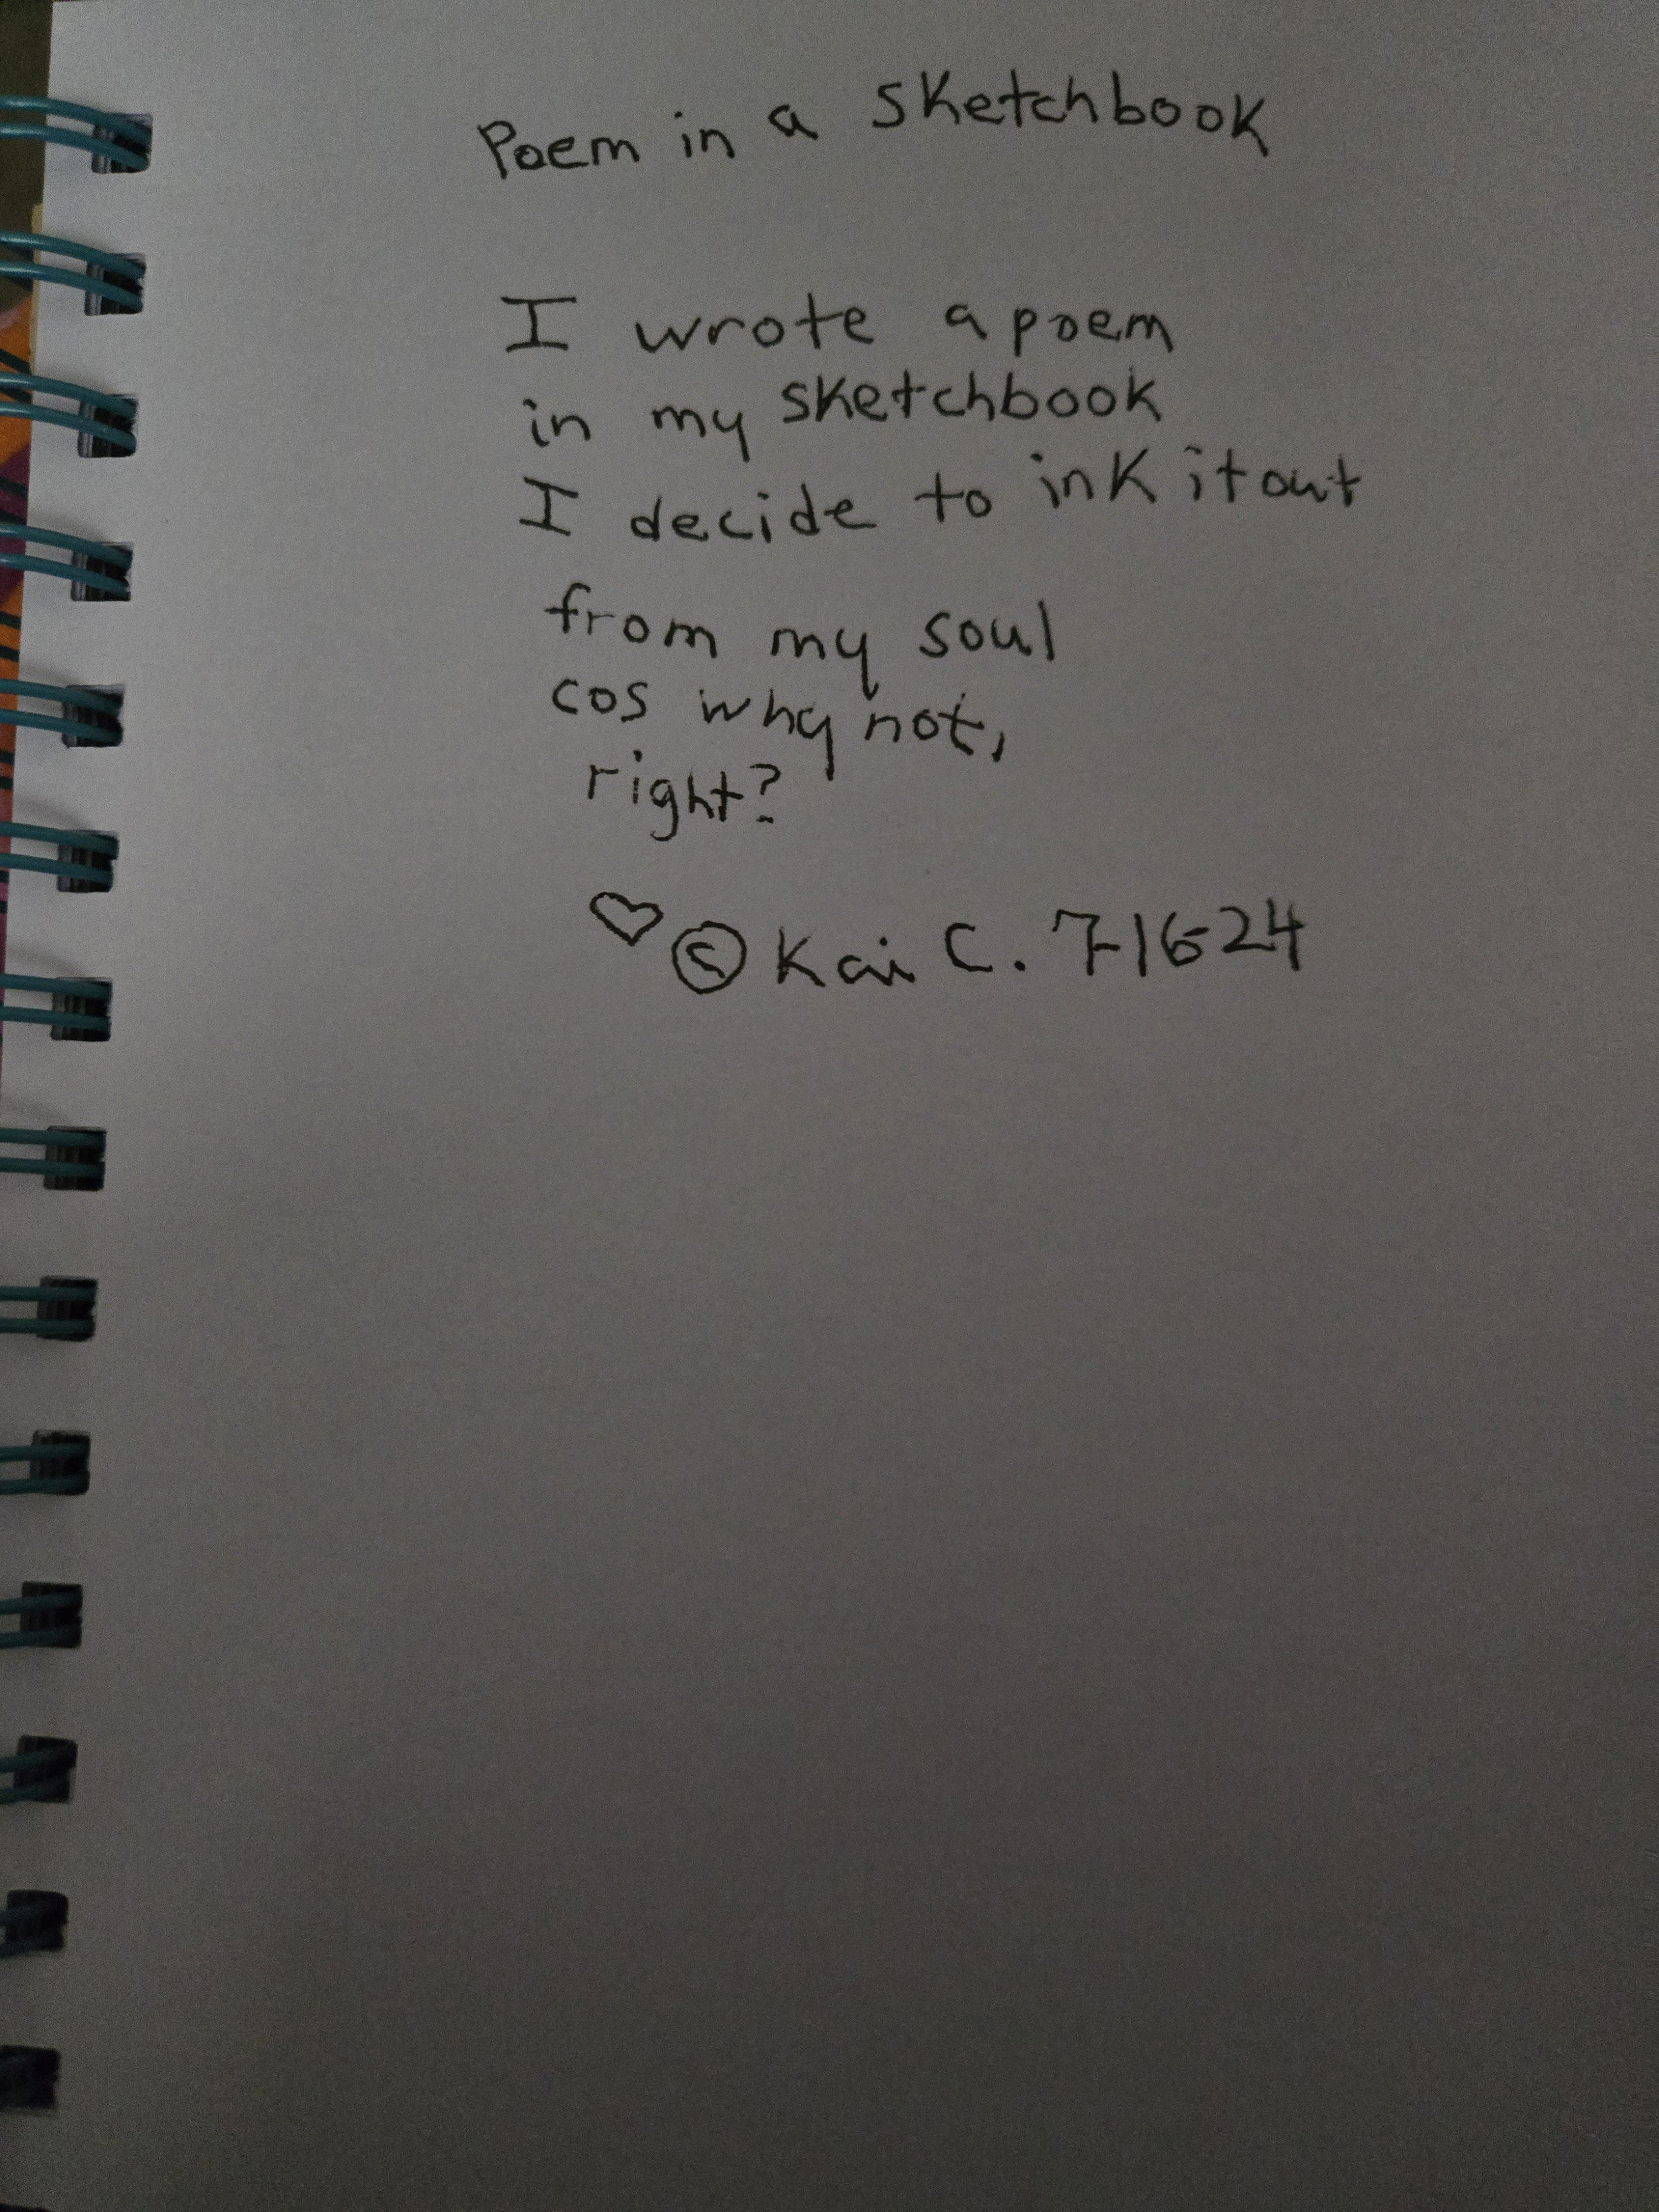 Poem in a Sketchbook
I wrote a poem
in my sketchbook
I decide to ink it out
from my soul
cos why not,
right?
♡ © Kai C. 7-16-24